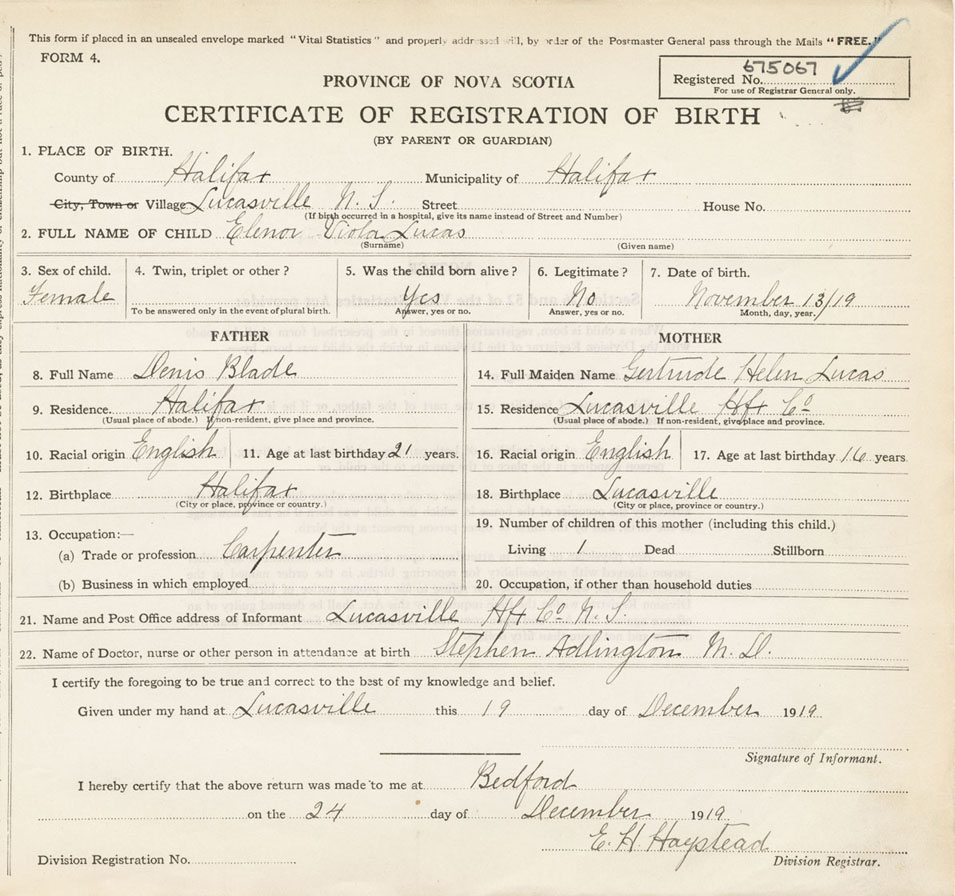 This form if placed in an unsealed envelope marked "Vital Statistics" and properly addressed will, by order of the Postmaster General pass through the Mails "FREE."
FORM 4.
675067
Registered No.
For use of Registrar General only.
PROVINCE OF NOVA SCOTIA
CERTIFICATE OF REGISTRATION OF BIRTH
(BY PARENT OR GUARDIAN)
1. PLACE OF BIRTH.
County of Halifax Municipality of Halifax
City, Town or Village Lucasville N. S. Street House No.
(If birth occurred in a hospital, give its name instead of Street and Number)
2. FULL NAME OF CHILD Elenor Viola Lucas
(Surname) (Given name)
3. Sex of child. 4. Twin, triplet or other? 5. Was the child born alive? 6. Legitimate? 7. Date of birth.
Female Yes No November 13/19
To be answered only in the event of plural birth. Answer, yes or no. Answer, yes or no. Month, day, year.
FATHER MOTHER
8. Full Name Denis Blade 14. Full Maiden Name Gertrude Helen Lucas
9. Residence. Halifax 15. Residence Lucasville Hfx Co
(Usual place of abode.) If non-resident, give place and province. (Usual place of abode.) If non-resident, give place and province.
10. Racial origin English 11. Age at last birthday 21 years. 16. Racial origin English 17. Age at last birthday 16 years.
12. Birthplace Halifax 18. Birthplace Lucasville
(City or place, province or country.) (City or place, province or country.)
13. Occupation:— 19. Number of children of this mother (including this child.)
(a) Trade or profession Carpenter Living 1 Dead Stillborn
(b) Business in which employed 20. Occupation, if other than household duties
21. Name and Post Office address of Informant Lucasville Hfx Co N. S.
22. Name of Doctor, nurse or other person in attendance at birth Stephen Adlington M. D.
I certify the foregoing to be true and correct to the best of my knowledge and belief.
Given under my hand at Lucasville this 19 day of December 1919
Signature of Informant.
I hereby certify that the above return was made to me at Bedford
on the 24 day of December 1919
E. H. Haystead
Division Registration No. Division Registrar.